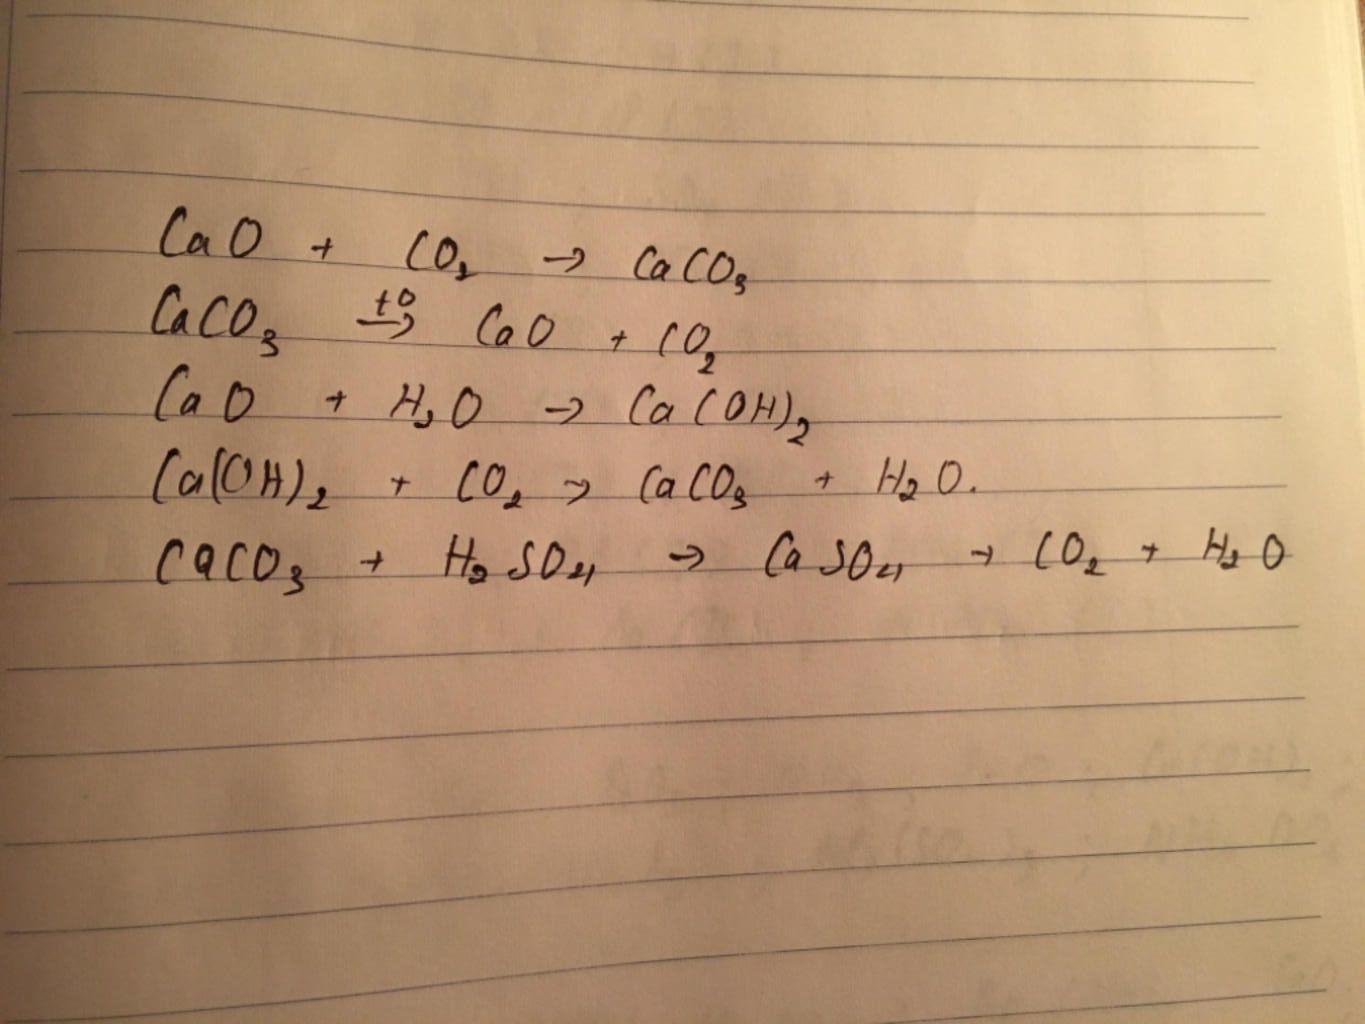 CaO + CO₂ → CaCO₃
CaCO₃ –t⁰→ CaO + CO₂
CaO + H₂O → Ca(OH)₂
Ca(OH)₂ + CO₂ → CaCO₃ + H₂O.
CaCO₃ + H₂SO₄ → CaSO₄ + CO₂ + H₂O